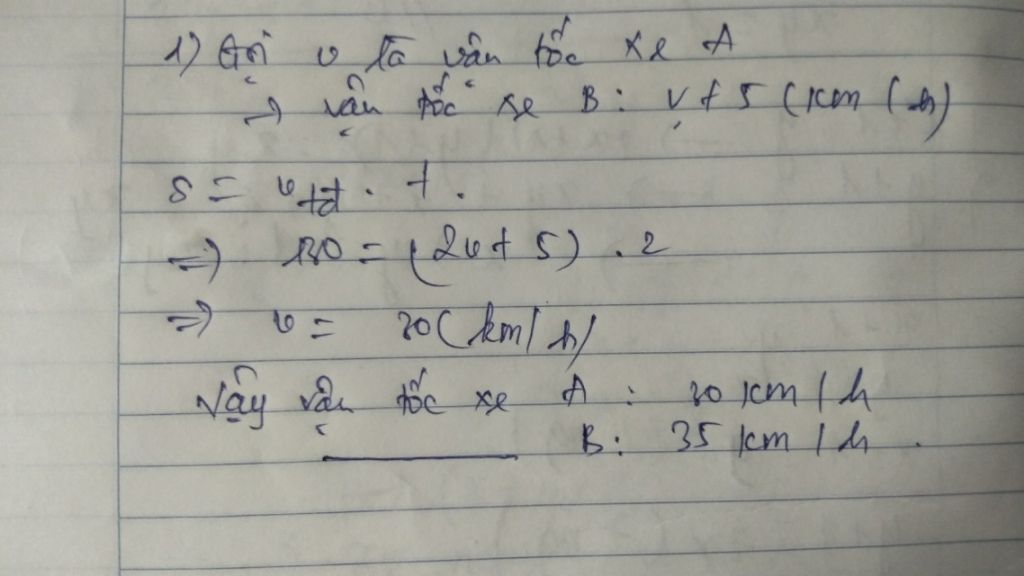 1) Gọi v là vận tốc xe A
→ vận tốc xe B: v + 5 (km/h)
S = vtđ . t.
=> 130 = (2v + 5) . 2
=> v = 30 (km/h)
Vậy vận tốc xe A : 30 km/h
B: 35 km/h.